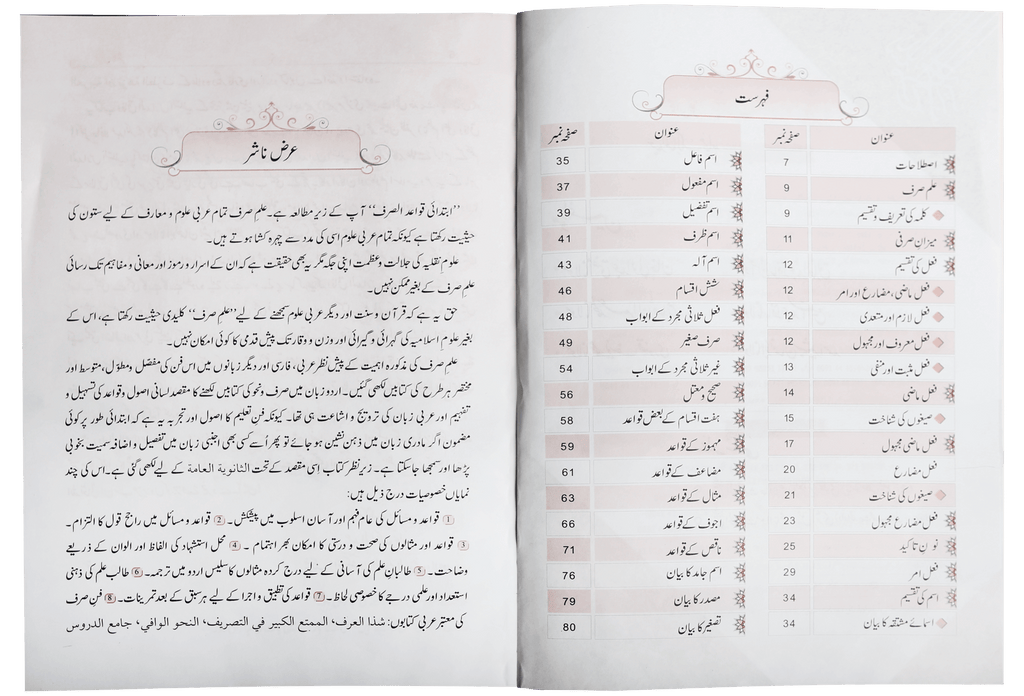 عرض ناشر
”ابتدائی قواعد الصرف“ آپ کے زیر مطالعہ ہے۔ علم صرف تمام عربی علوم و معارف کے لیے ستون کی
حیثیت رکھتا ہے کیونکہ تمام عربی علوم اسی کی مدد سے چہرہ کشا ہوتے ہیں۔
علوم نقلیہ کی جلالت و عظمت اپنی جگہ مگر یہ بھی حقیقت ہے کہ ان کے اسرار و رموز اور معانی و مفاہیم تک رسائی
علم صرف کے بغیر ممکن نہیں۔
حق یہ ہے کہ قرآن و سنت اور دیگر عربی علوم سمجھنے کے لیے ”علم صرف“ کلیدی حیثیت رکھتا ہے، اس کے
بغیر علوم اسلامیہ کی گہرائی و گیرائی اور وزن و وقار تک پیش قدمی کا کوئی امکان نہیں۔
علم صرف کی مذکورہ اہمیت کے پیش نظر عربی، فارسی اور دیگر زبانوں میں اس فن کی مفصل و مطول، متوسط اور
مختصر ہر طرح کی کتابیں لکھی گئیں۔ اردو زبان میں صرف و نحو کی کتابیں لکھنے کا مقصد لسانی اصول و قواعد کی تسہیل و
تفہیم اور عربی زبان کی ترویج و اشاعت ہی تھا۔ کیونکہ فن تعلیم کا اصول اور تجربہ یہ ہے کہ ابتدائی طور پر کوئی
مضمون اگر مادری زبان میں ذہن نشین ہو جائے تو پھر اُسے کسی بھی اجنبی زبان میں تفصیل و اضافہ سمیت بخوبی
پڑھا اور سمجھا جا سکتا ہے۔ زیر نظر کتاب اِسی مقصد کے تحت الثانوية العامة کے لیے لکھی گئی ہے۔ اس کی چند
نمایاں خصوصیات درج ذیل ہیں:
① قواعد و مسائل کی عام فہم اور آسان اسلوب میں پیشکش۔ ② قواعد و مسائل میں راجح قول کا التزام۔
③ قواعد اور مثالوں کی صحت و درستی کا امکان بھر اہتمام۔ ④ محل استشہاد کی الفاظ اور الوان کے ذریعے
وضاحت۔ ⑤ طالبانِ علم کی آسانی کے لیے درج کردہ مثالوں کا سلیس اردو میں ترجمہ۔ ⑥ طالب علم کی ذہنی
استعداد اور علمی درجے کا خصوصی لحاظ۔ ⑦ قواعد کی تطبیق و اجرا کے لیے ہر سبق کے بعد تمرینات۔ ⑧ فن صرف
کی معتبر عربی کتابوں: شذا العرف، الممتع الكبير في التصريف، النحو الوافي، جامع الدروس
فہرست
عنوان صفحہ نمبر
اصطلاحات 7
علم صرف 9
کلمہ کی تعریف و تقسیم 9
میزان صرفی 11
فعل کی تقسیم 12
فعل ماضی، مضارع اور امر 12
فعل لازم اور متعدی 12
فعل معروف اور مجہول 12
فعل مثبت اور منفی 13
فعل ماضی 14
صیغوں کی شناخت 15
فعل ماضی مجہول 17
فعل مضارع 20
صیغوں کی شناخت 21
فعل مضارع مجہول 23
نون تاکید 25
فعل امر 29
اسم کی تقسیم 34
اسمائے مشتقہ کا بیان 34
عنوان صفحہ نمبر
اسم فاعل 35
اسم مفعول 37
اسم تفضیل 39
اسم ظرف 41
اسم آلہ 43
شش اقسام 46
فعل ثلاثی مجرد کے ابواب 48
صرف صغیر 49
غیر ثلاثی مجرد کے ابواب 54
صحیح و معتل 56
ہفت اقسام کے بعض قواعد 58
مہموز کے قواعد 59
مضاعف کے قواعد 61
مثال کے قواعد 63
اجوف کے قواعد 66
ناقص کے قواعد 71
اسم جامد کا بیان 76
مصدر کا بیان 79
تصغیر کا بیان 80